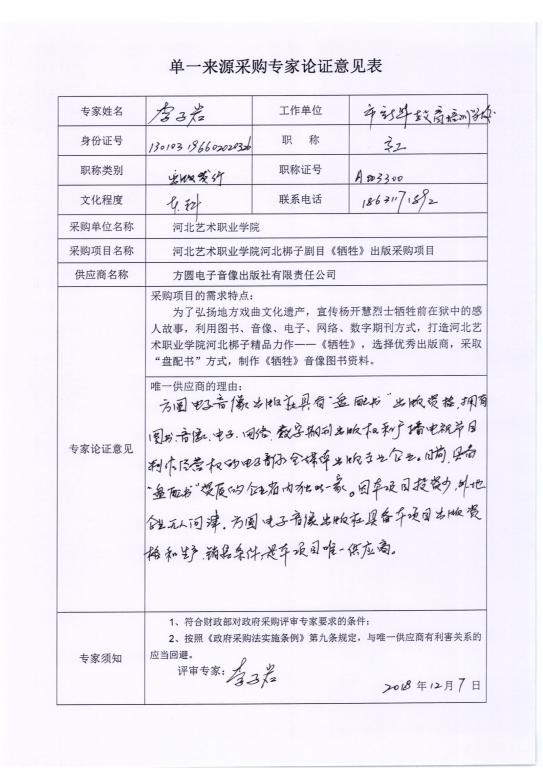 单一来源采购专家论证意见表
专家姓名 李子岩 工作单位 市新华教育培训学校
身份证号 职称
职称类别 出版发行 职称证号 A003300
文化程度 本科 联系电话
采购单位名称 河北艺术职业学院
采购项目名称 河北艺术职业学院河北梆子剧目《牺牲》出版采购项目
供应商名称 方圆电子音像出版社有限责任公司
专家论证意见
采购项目的需求特点：
为了弘扬地方戏曲文化遗产，宣传杨开慧烈士牺牲前在狱中的感
人故事，利用图书、音像、电子、网络、数字期刊方式，打造河北艺
术职业学院河北梆子精品力作——《牺牲》，选择优秀出版商，采取
“盘配书”方式，制作《牺牲》音像图书资料。
唯一供应商的理由：
方圆电子音像出版社具有“盘配书”出版资格，拥有
图书、音像、电子、网络、数字期刊出版权和广播电视节目
制作经营权的电子音像全媒体出版专业企业。目前，具有
“盘配书”资质的企业省内独此一家。因本项目投资少，外地
企业无人问津。方圆电子音像出版社具备本项目出版资
格和生产、销售条件，是本项目唯一供应商。
专家须知
1、符合财政部对政府采购评审专家要求的条件；
2、按照《政府采购法实施条例》第九条规定，与唯一供应商有利害关系的
应当回避。
评审专家：李子岩
2018 年 12 月 7 日